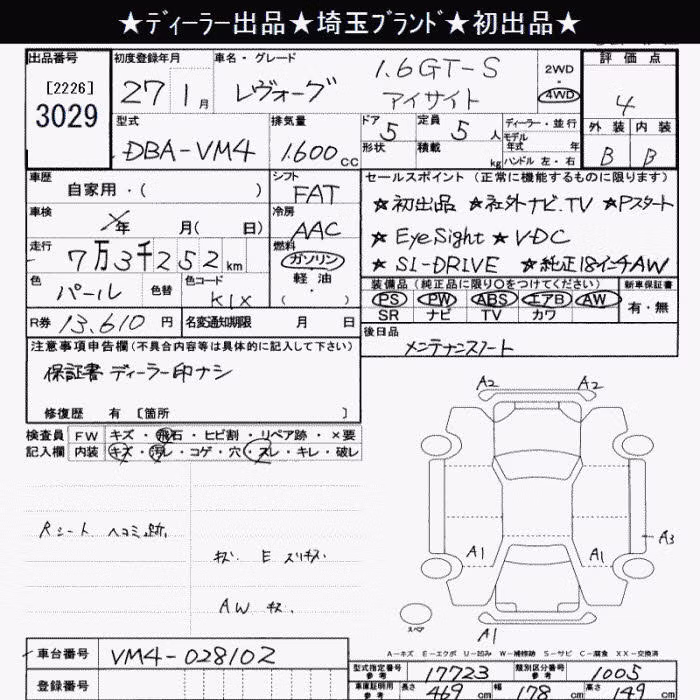 ★ディーラー出品★埼玉ブランド★初出品★
出品番号 初度登録年月 車名・グレード 評価点
[2226] 27 1月 レヴォーグ 1.6GT-S アイサイト 2WD・4WD 4
3029
型式 排気量 ドア 5 定員 5人 ディーラー・並行 外装 内装
DBA-VM4 1.600cc 形状 積載 kg モデル年式 年 ハンドル 左・右 B B
車歴 シフト セールスポイント(正常に機能するものに限ります)
自家用・( ) FAT ★初出品 ★社外ナビ.TV ★Pスタート
車検 年 月( 日) 冷房 AAC ★EyeSight ★VDC
走行 7万3千252km 燃料 ガソリン ★SI-DRIVE ★純正18インチAW
軽油・( )
色 パール 色替 色コード K1X 装備品(純正品に限り○をつけてください) 新車保証書
PS PW ABS エアB AW 有・無
R券 13.610円 名変通知期限 月 日 SR ナビ TV カワ
注意事項申告欄(不具合内容等は具体的に記入して下さい) 後日品
保証書 ディーラー印ナシ メンテナンスノート
修復歴 有 [箇所 ]
A2 A2
検査員 FW キズ・飛石・ヒビ割・リペア跡・×要
記入欄 内装 キズ・汚レ・コゲ・穴・スレ・キレ・破レ
Rシート ヘコミ跡
A3
A1 A1
AW キズ.
スペア
A1
A-キズ E-エクボ U-凹み W-補修跡 S-サビ C-腐食 XX-交換済
車台番号 VM4-028102
型式指定番号 参考 17723 類別区分番号 参考 1005
登録番号 車庫証明用 参考 長さ 469cm 幅 178cm 高さ 149cm